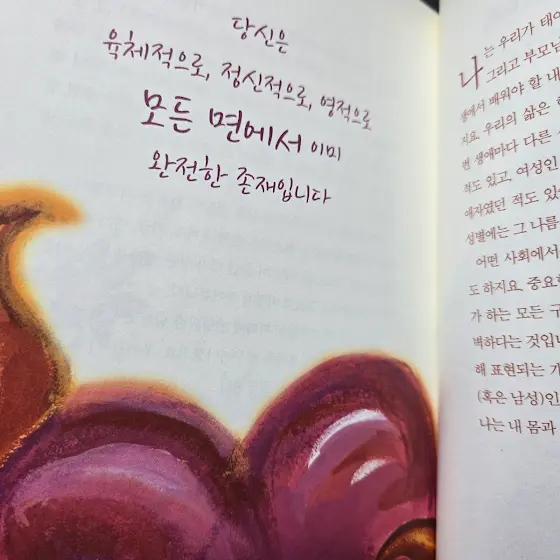 당신은
육체적으로, 정신적으로, 영적으로
모든 면에서 이미
완전한 존재입니다
나는 우리가 태어
그리고 부모님
생에서 배워야 할 내
지요. 우리의 삶은
번 생애마다 다른
적도 있고, 여성인
애자였던 적도 있
성별에는 그 나름
어떤 사회에서
도 하지요. 중요한
가 하는 모든 구
벽하다는 것입니
해 표현되는 개
(혹은 남성)인
나는 내 몸과